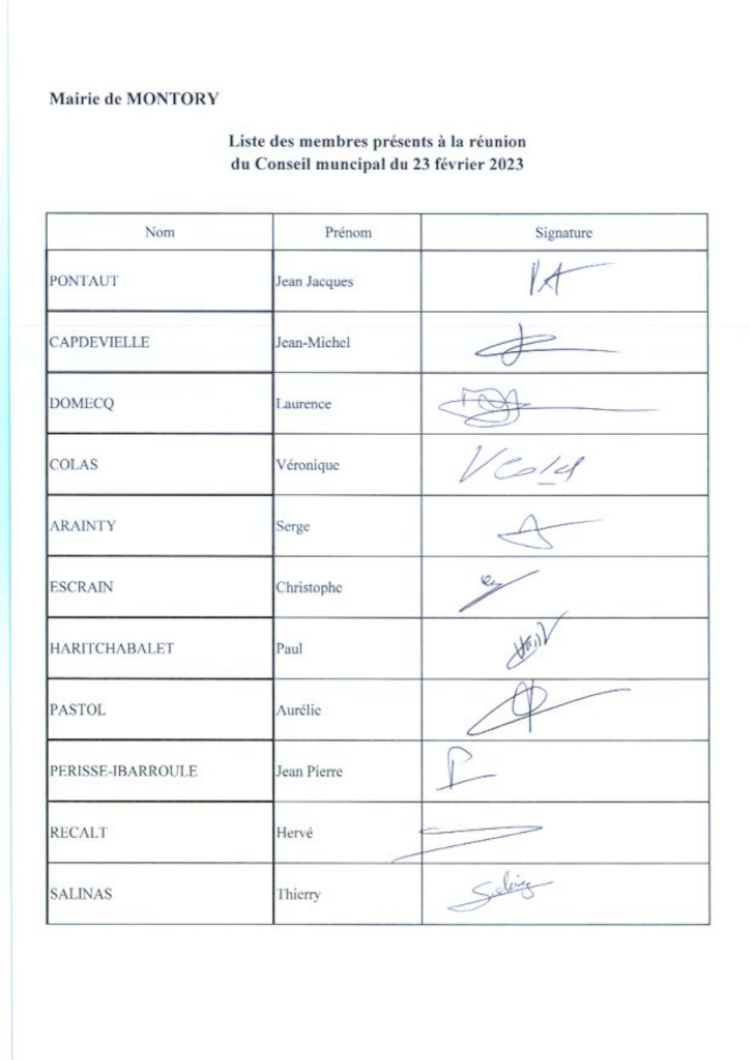 Mairie de MONTORY
Liste des membres présents à la réunion
du Conseil muncipal du 23 février 2023
Nom Prénom Signature
PONTAUT Jean Jacques
CAPDEVIELLE Jean-Michel
DOMECQ Laurence
COLAS Véronique V Colas
ARAINTY Serge
ESCRAIN Christophe
HARITCHABALET Paul
PASTOL Aurélie
PERISSE-IBARROULE Jean Pierre
RECALT Hervé
SALINAS Thierry